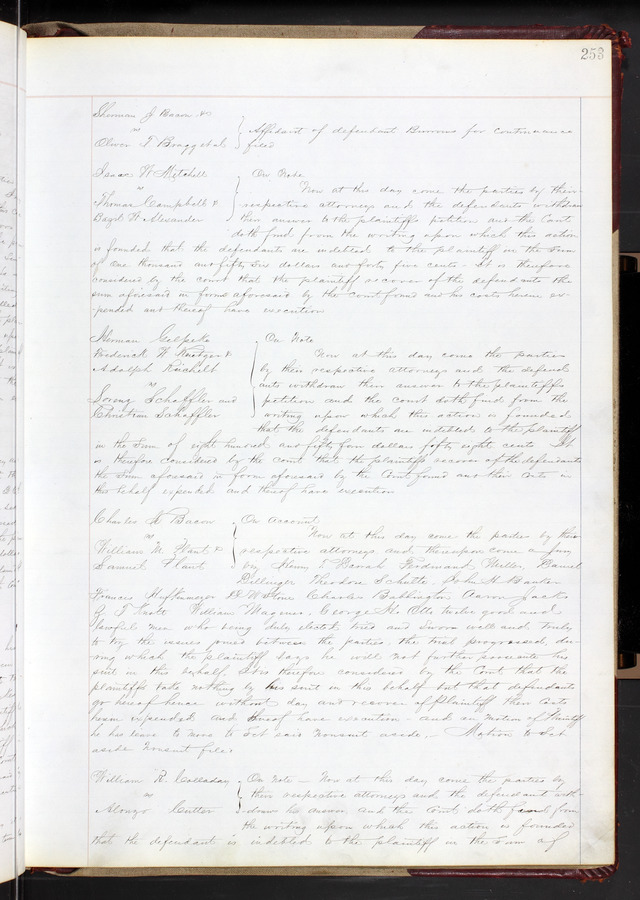 253
Sherman J Bacon &c
vs
Affidavit of defendant Burrows for continuance
Oliver T Bragg et al filed
Isaac W Mitchell On Note
vs Now at this day come the parties by their
Thomas Campbell & respective attorneys and the defendants withdraw
Bazil W. Alexander their answer to the plaintiffs petition and the Court
doth find from the writing upon which this action
is founded that the defendants are indebted to the plaintiff in the sum
of One thousand and fifty six dollars and forty five cents - It is therefore
considered by the court that the plaintiff recover of the defendants the
sum aforesaid in form aforesaid by the Court found and his costs herein ex-
pended and thereof have execution
Herman Gelpcke On Note
Frederick W. & Now at this day come the parties
Adolph Reichelt by their respective attorneys and the defend
vs ants withdraw their answer to the plaintiffs
Schaffter and petition and the court doth find from the
Christian Schaffter writing upon which this action is founded
that the defendants are indebted to the plaintiff
in the sum of eight hundred and fifty four dollars fifty eight cents It
is therefore considered by the court that the plaintiffs recover of the defendants
the sum aforesaid in form aforesaid by the Court found and their costs in
this behalf expended and thereof have execution
Charles H Bacon On Account
vs Now at this day come the parties by their
William M. Plant & respective attorneys and thereupon come a jury
Samuel Plant by Henry T Ferdinand Miller, Daniel
Dillinger Theodore Schulte, John H Barker
Francis Charles Babbington Aaron Jacks
J Knott William Wagener George H. Otto twelve good and
lawful men who being duly elected tried and sworn well and truly
to try the issues joined between the parties the trial progressed, du-
ring which the plaintiff says he will not further prosecute his
suit in this behalf. It is therefore considered by the Court that the
plaintiffs take nothing by his suit in this behalf but that defendants
go hereof hence without day and recover of Plaintiff their costs
herein expended and thereof have execution - and on motion of Plaintiff
he has leave to move to Set said Nonsuit aside. - Motion to Set
aside Nonsuit filed
William R. Colladay On Note - Now at this day come the parties by
vs their respective attorneys and the defendant with-
Alonzo Cutter draws his answer and the Court doth find from
the writing upon which this action is founded
that the defendant is indebted to the plaintiff in the sum of